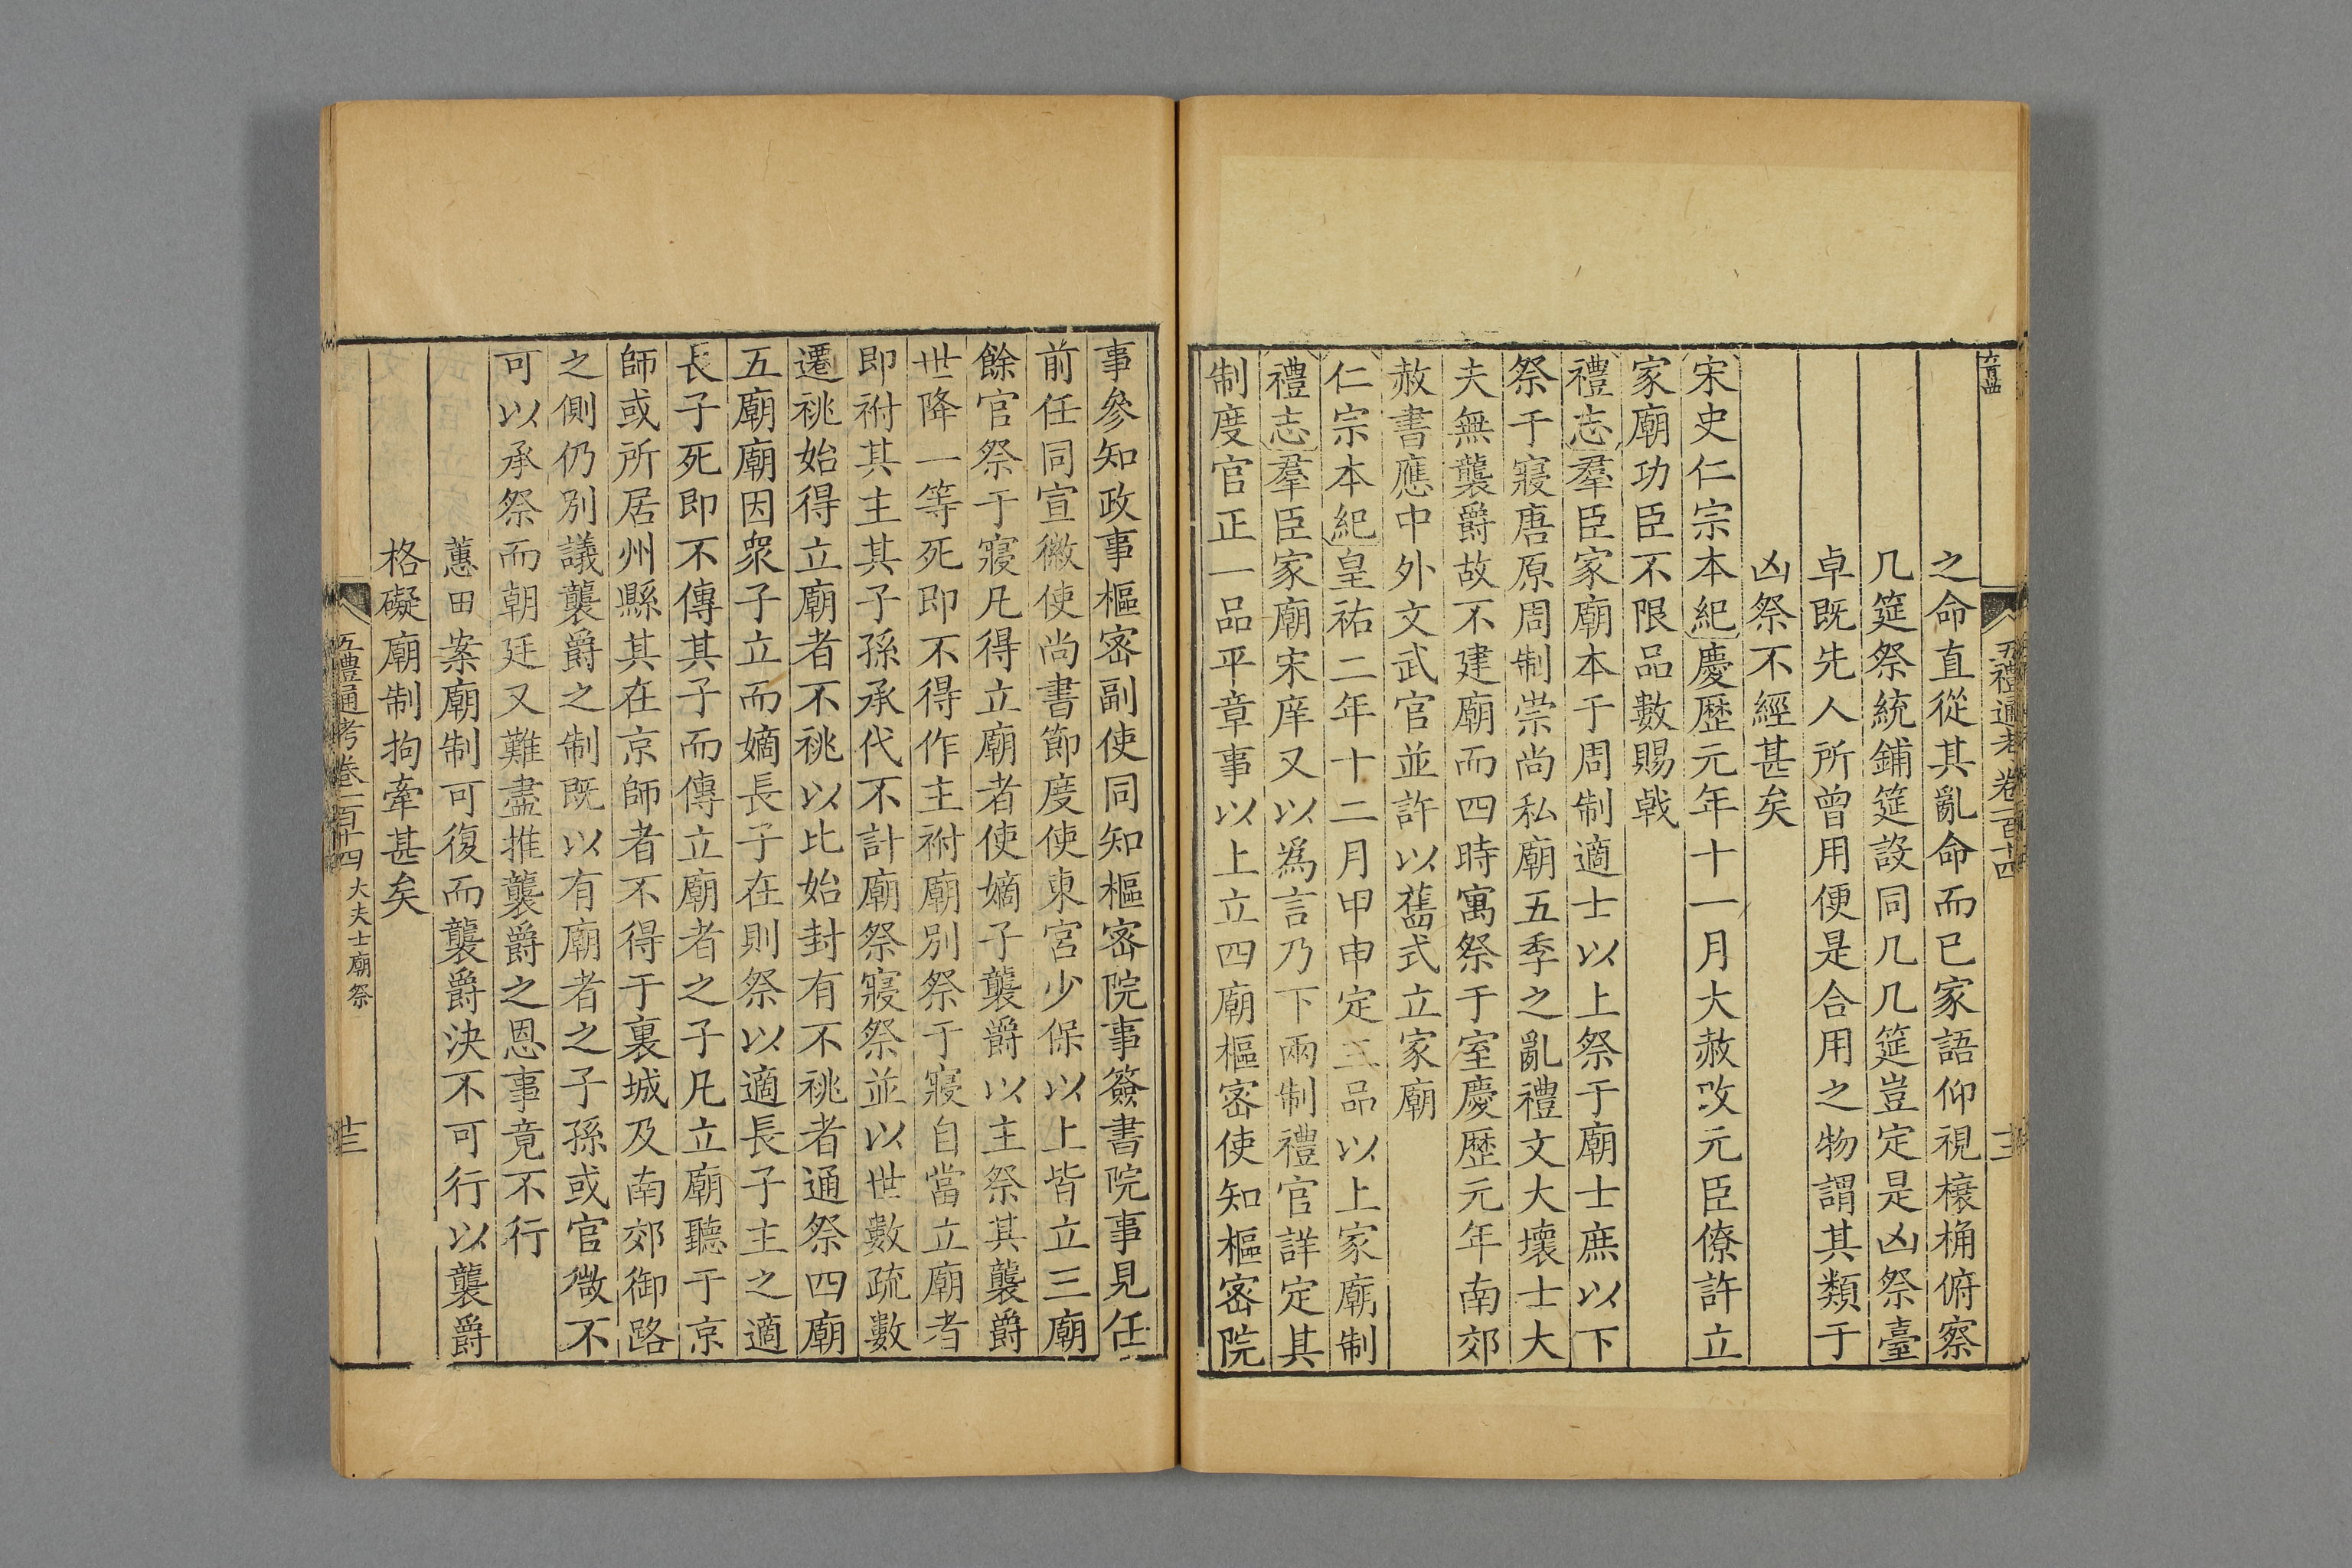 五禮通考卷一百十四
之命直從其亂命而已家語仰視榱桷俯察
几筵祭統鋪筵設同几几筵豈定是凶祭臺
卓既先人所曾用便是合用之物謂其類于
凶祭不經甚矣
宋史仁宗本紀慶歷元年十一月大赦改元臣僚許立
家廟功臣不限品數賜戟
禮志羣臣家廟本于周制適士以上祭于廟士庶以下
祭于寢唐原周制崇尚私廟五季之亂禮文大壞士大
夫無襲爵故不建廟而四時寓祭于室慶歷元年南郊
赦書應中外文武官並許以舊式立家廟
仁宗本紀皇祐二年十二月甲申定三品以上家廟制
禮志羣臣家廟宋庠又以爲言乃下兩制禮官詳定其
制度官正一品平章事以上立四廟樞密使知樞密院
事參知政事樞密副使同知樞密院事簽書院事見任
前任同宣徽使尚書節度使東宮少保以上皆立三廟
餘官祭于寢凡得立廟者使嫡子襲爵以主祭其襲爵
世降一等死即不得作主祔廟別祭于寢自當立廟者
即祔其主其子孫承代不計廟祭寢祭並以世數疏數
遷祧始得立廟者不祧以比始封有不祧者通祭四廟
五廟廟因衆子立而嫡長子在則祭以適長子主之適
長子死即不傳其子而傳立廟者之子凡立廟聽于京
師或所居州縣其在京師者不得于裏城及南郊御路
之側仍別議襲爵之制既以有廟者之子孫或官微不
可以承祭而朝廷又難盡推襲爵之恩事竟不行
蕙田案廟制可復而襲爵決不可行以襲爵
格礙廟制拘牽甚矣
五禮通考卷一百十四 大夫士廟祭